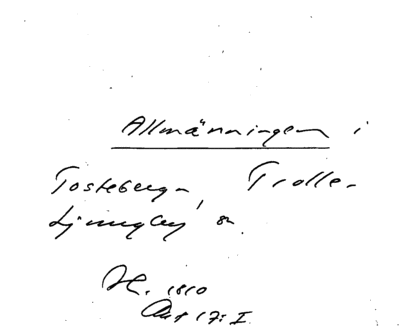 Allmänningen i
Tosteberga, Trolle-
Ljungby sn.
H. 1810
Akt 17: I